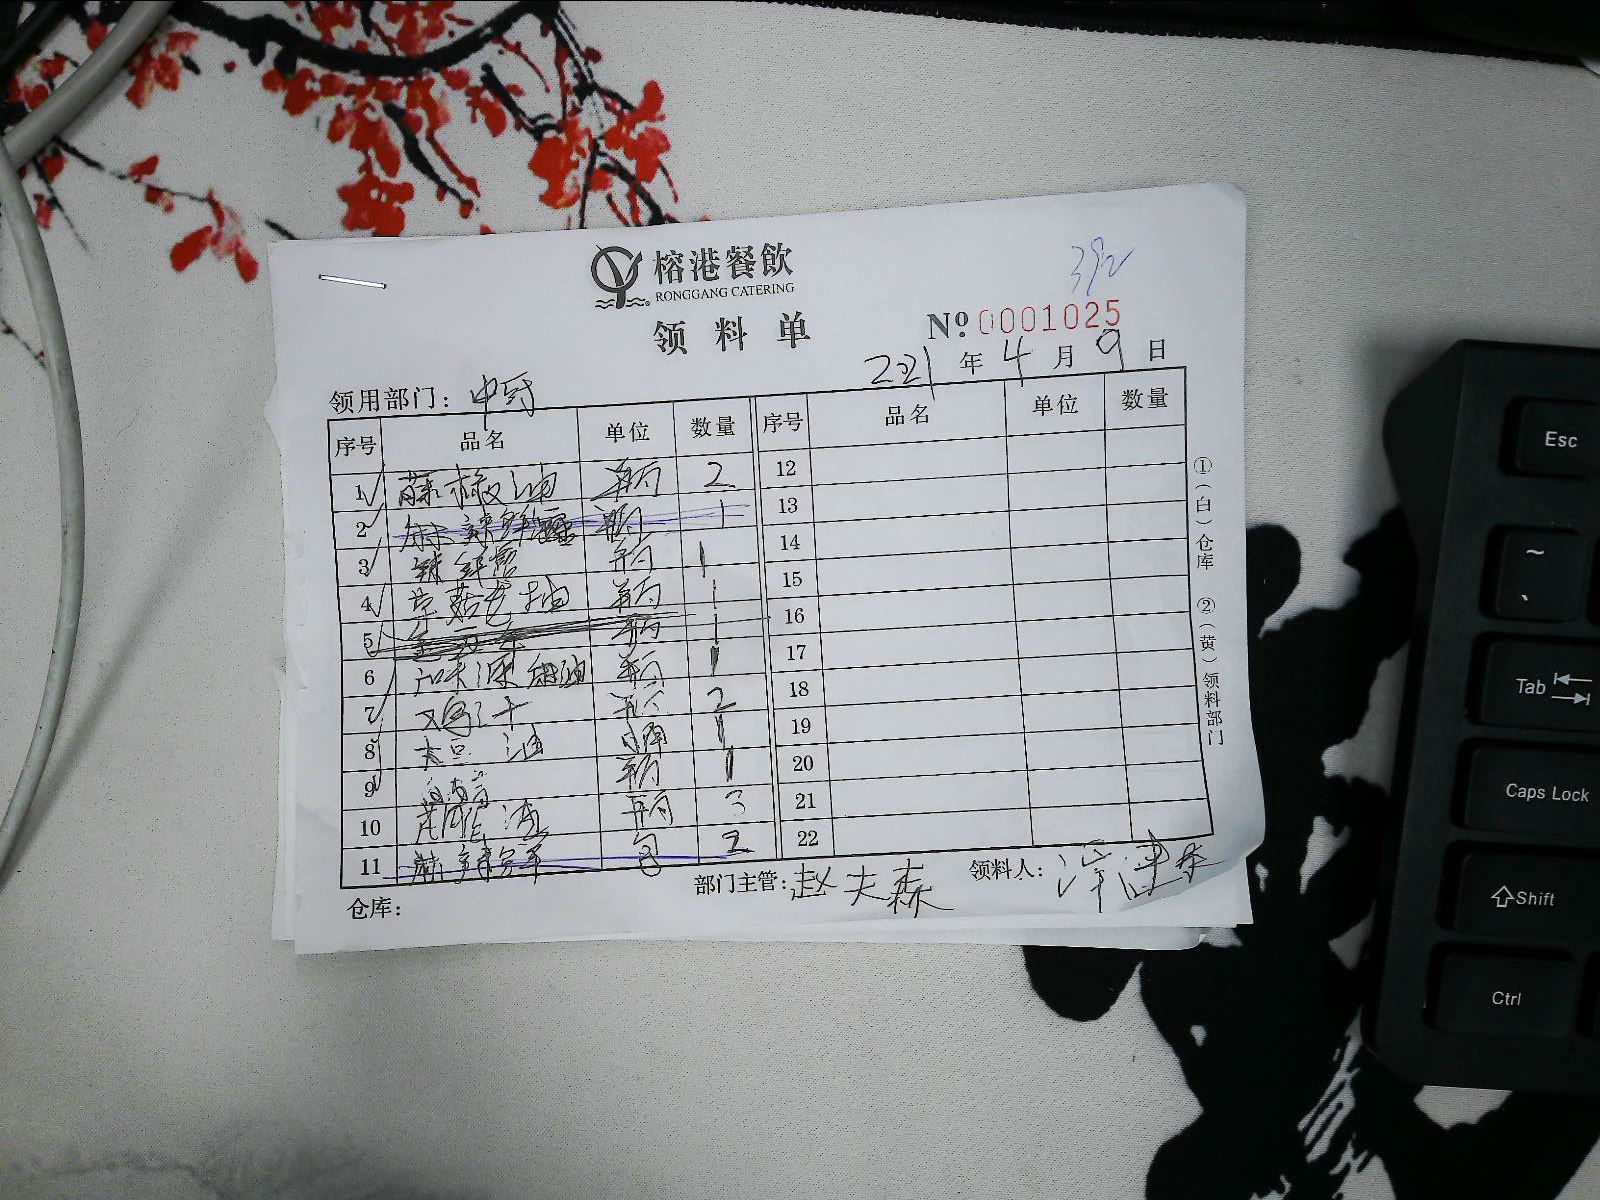 榕港餐飲
RONGGANG CATERING
392
领料单
Nº 0001025
2021 年 4 月 9 日
领用部门: 中厨
序号 品名 单位 数量 序号 品名 单位 数量
1 藤椒油 瓶 2 12
2 麻辣鲜露 瓶 1 13
3 辣鲜露 瓶 1 14
4 草菇老抽 瓶 1 15
5 瓶 1 16
6 瓶 1 17
7 2 18
8 大豆油 桶 1 19
9 瓶 1 20
10 瓶 3 21
11 包 2 22
仓库: 部门主管: 赵夫森 领料人:
①(白)仓库 ②(黄)领料部门
Esc
~
Tab
Caps Lock
Shift
Ctrl